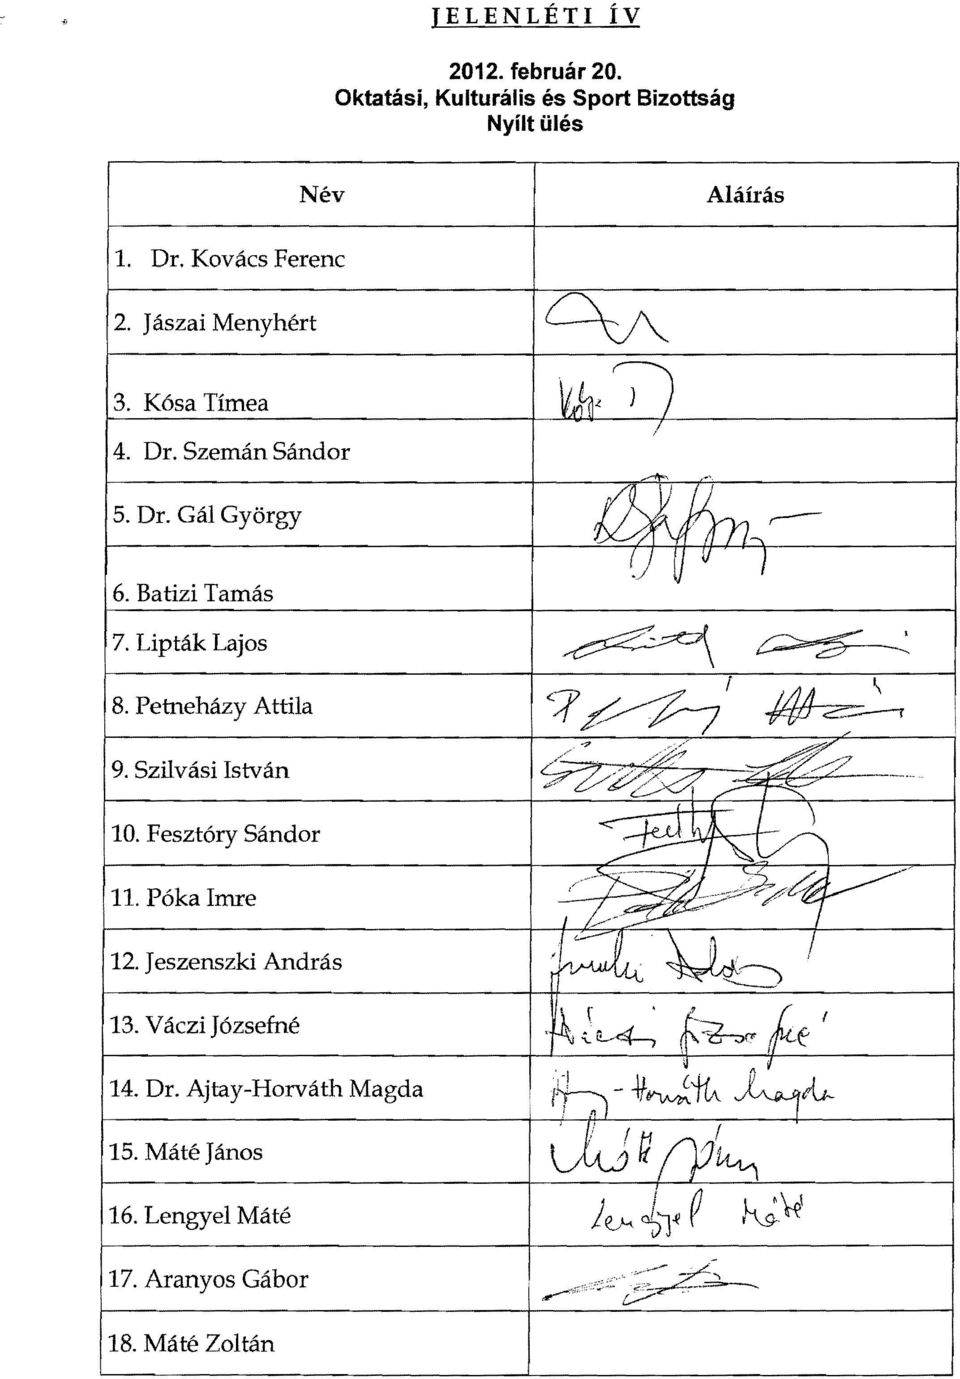 JELENLÉTI ÍV
2012. február 20.
Oktatási, Kulturális és Sport Bizottság
Nyílt ülés
Név Aláírás
1. Dr. Kovács Ferenc
2. Jászai Menyhért
3. Kósa Tímea
4. Dr. Szemán Sándor
5. Dr. Gál György
6. Batizi Tamás
7. Lipták Lajos
8. Petneházy Attila
9. Szilvási István
10. Fesztóry Sándor
11. Póka Imre
12. Jeszenszki András
13. Váczi Józsefné
14. Dr. Ajtay-Horváth Magda - Horváth Magda
15. Máté János Máté János
16. Lengyel Máté Lengyel Máté
17. Aranyos Gábor
18. Máté Zoltán